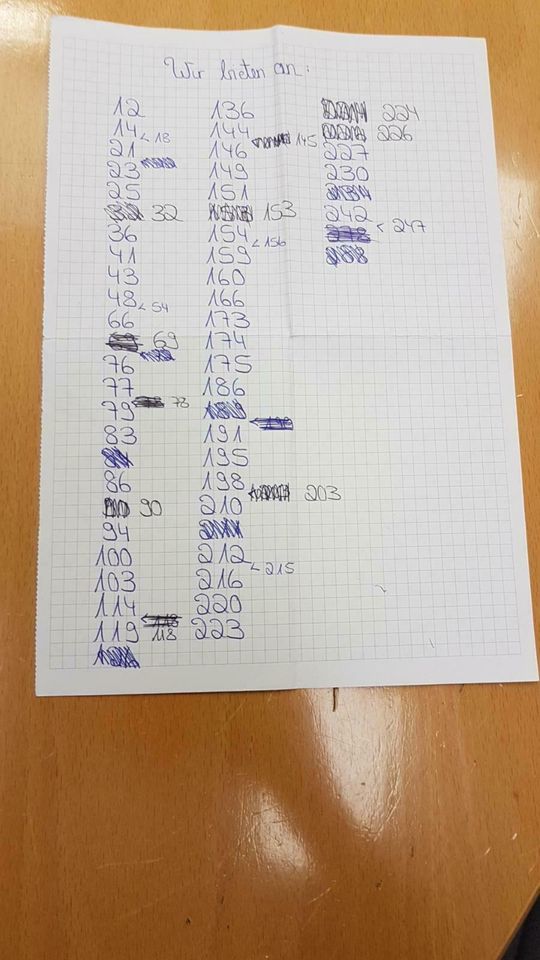 Wir bieten an:
12
14 < 18
21
23
25
32
36
41
43
48 < 54
66
69
76
77
79 78
83
86
90
94
100
103
114
119 118
136
144
146 145
149
151
153
154
159 < 156
160
166
173
174
175
186
191
195
198
210 203
212
216 < 215
220
223
224
226
227
230
242
< 247